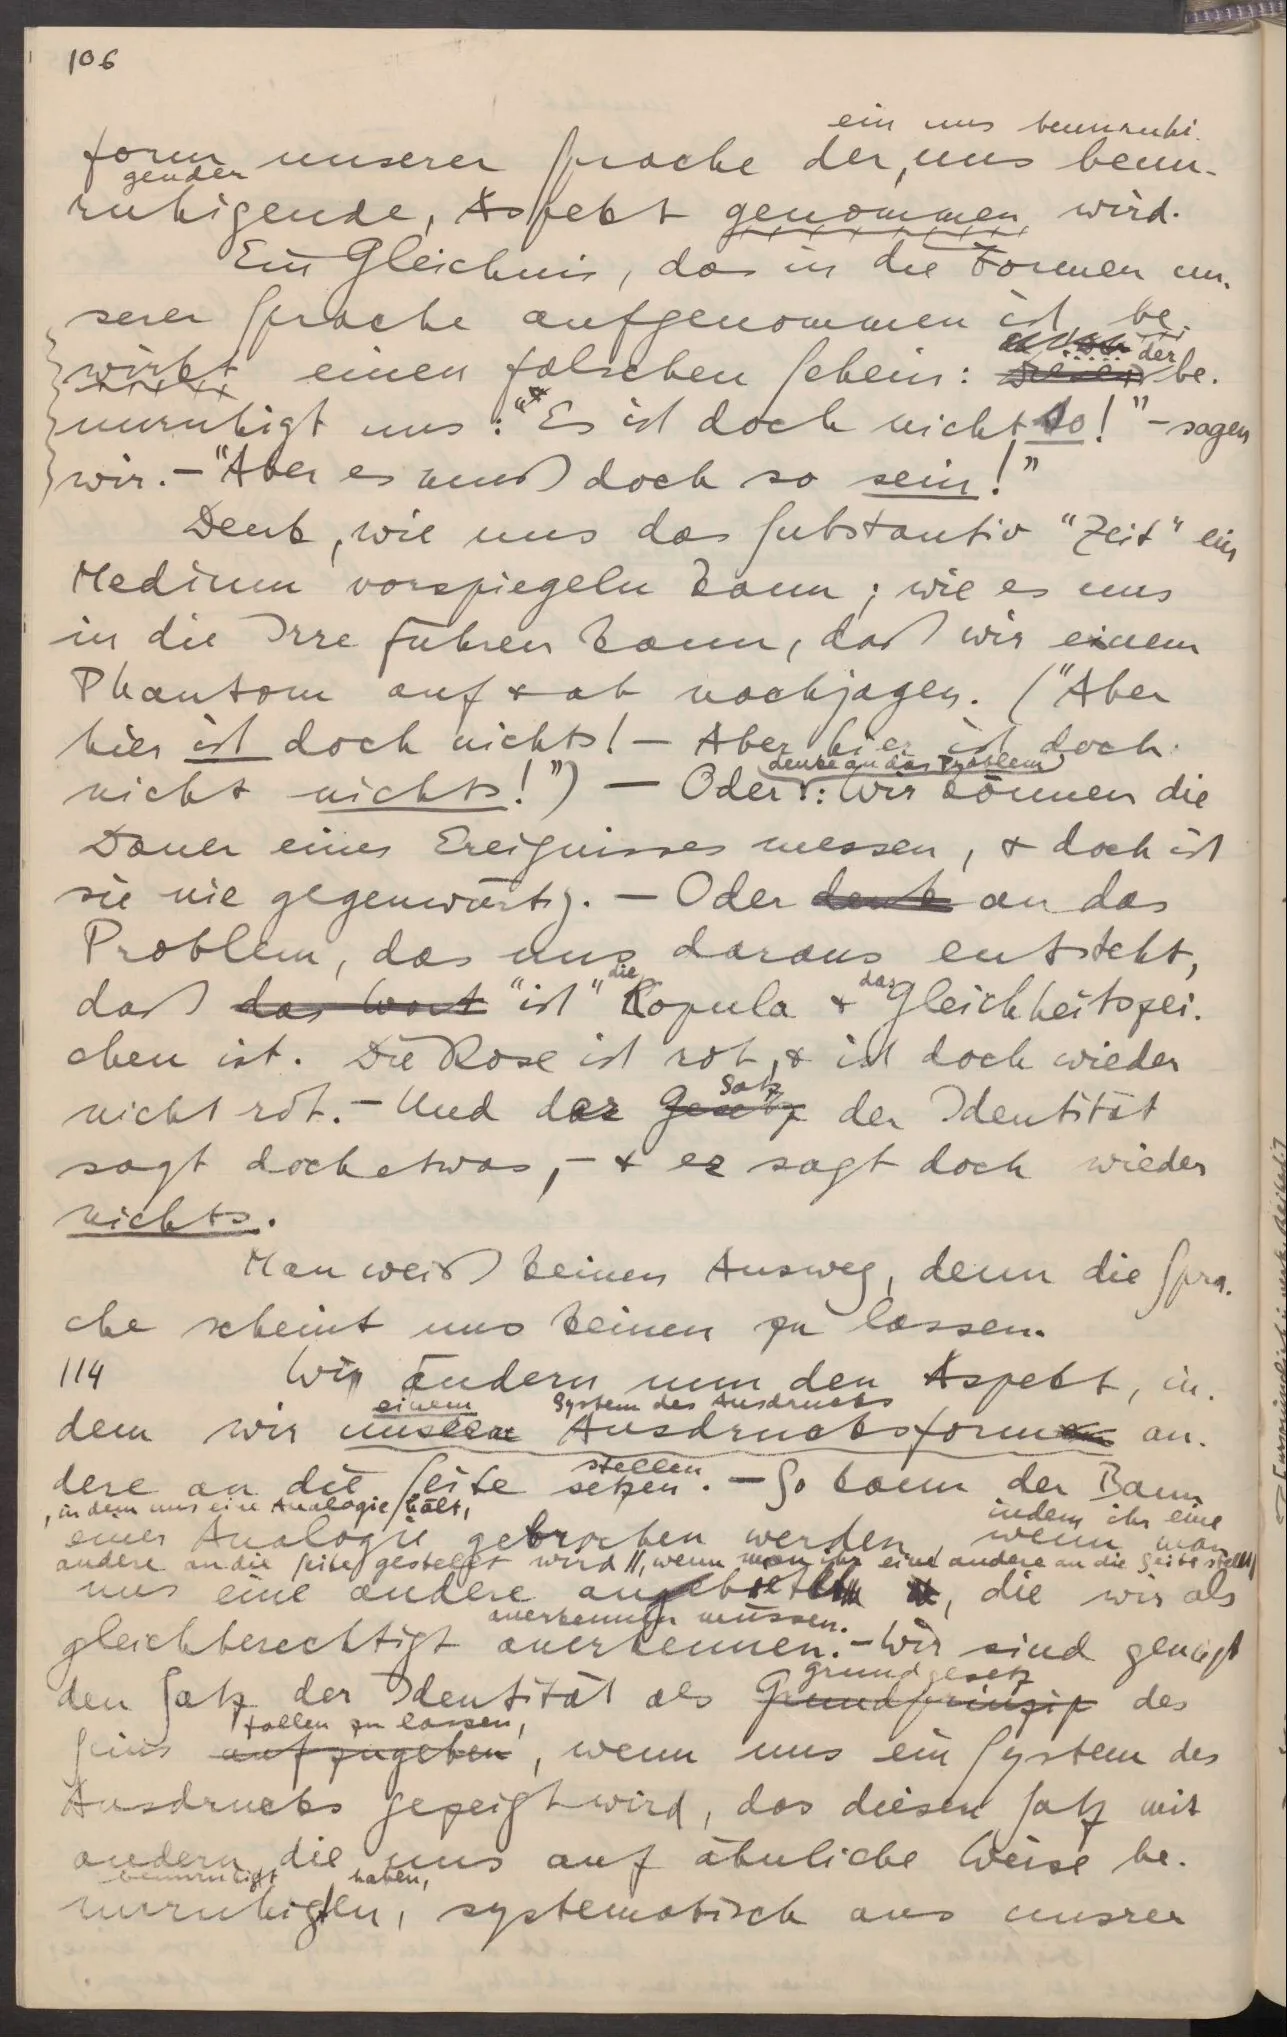 106
ein uns beunruhi-
form unserer Sprache der, uns beun-
gender
ruhigende, Aspekt genommen wird.
Ein Gleichnis, das in die Formen un-
serer Sprache aufgenommen ist, be-
der
wirkt einen falschen Schein: dieser be-
unruhigt uns: "Es ist doch nicht so!" – sagen
wir. – "Aber es muß doch so sein!"
Denk, wie uns das Substantiv "Zeit" ein
Medium vorspiegeln kann; wie es uns
in die Irre führen kann, daß wir einem
Phantom auf & ab nachjagen. ("Aber
hier ist doch nichts! – Aber hier ist doch
denke an das Problem
nicht nichts!") – Oder: Wir können die
Dauer eines Ereignisses messen, & doch ist
sie nie gegenwärtig. – Oder denke an das
Problem, das uns daraus entsteht,
die das
daß das Wort "ist" Kopula & Gleichheitszei-
chen ist. Die Rose ist rot, & ist doch wieder
Satz
nicht rot. – Und der Gesetz der Identität
sagt doch etwas, – & er sagt doch wieder
nichts.
Man weiß keinen Ausweg, denn die Spra-
che scheint uns keinen zu lassen.
114 Wir ändern nun den Aspekt, in-
einem System des Ausdrucks
dem wir unserer Ausdrucksform an-
stellen
dere an die Seite setzen. – So kann der Bann
, in dem uns eine Analogie hält, indem ihr eine
einer Analogie gebrochen werden, wenn man
andere an die Seite gestellt wird //, wenn man ihr eine andere an die Seite stellt//
uns eine andere , die wir als
anerkennen müssen.
gleichberechtigt anerkennen. – Wir sind geneigt
Grundgesetz
den Satz der Identität als Grundprinzip des
fallen zu lassen,
Seins aufzugeben, wenn uns ein System des
Ausdrucks gezeigt wird, das diesen Satz mit
andern die uns auf ähnliche Weise be-
beunruhigt haben,
unruhigten, systematisch aus unsrer